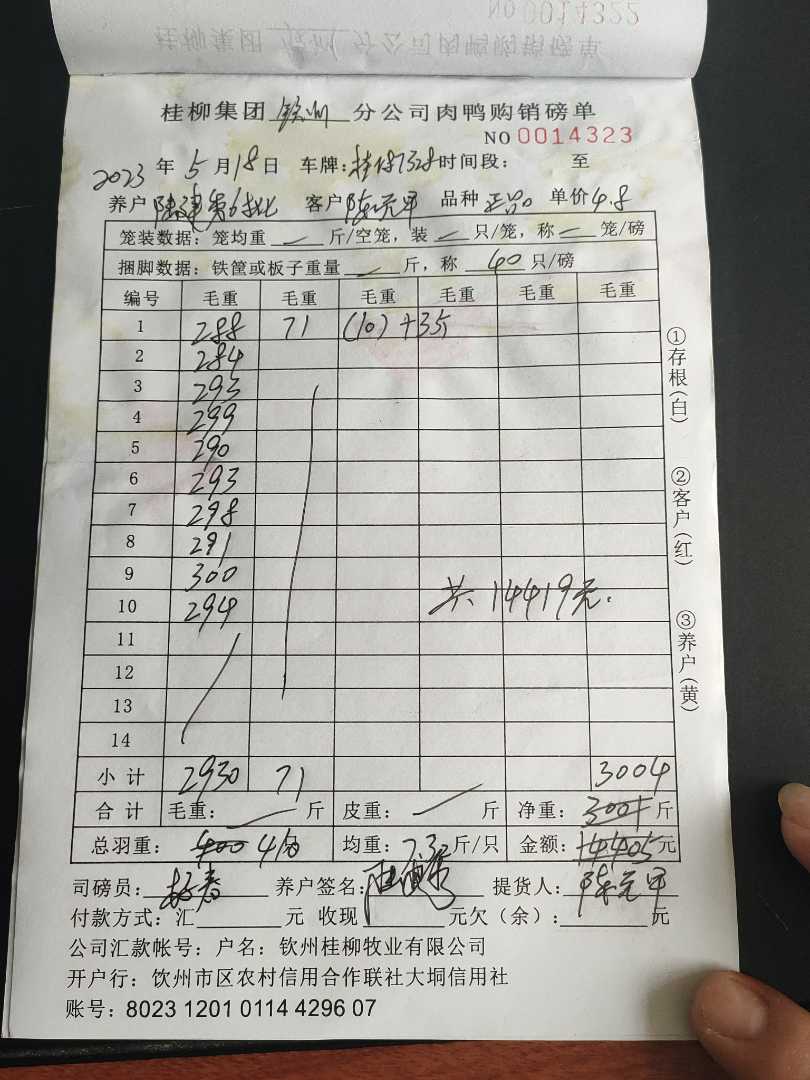 NO 0014322
桂柳集团 钦州 分公司肉鸭购销磅单
桂柳集团 钦州 分公司肉鸭购销磅单
NO 0014323
2023 年 5 月 18 日 车牌: 时间段: 至
养户 客户 陈元甲 品种 正品 单价 4.8
笼装数据: 笼均重 斤/空笼, 装 只/笼, 称 笼/磅
捆脚数据: 铁筐或板子重量 斤, 称 40 只/磅
编号 毛重 毛重 毛重 毛重 毛重 毛重
1 288 71 (10) +35
2 284
3 293
4 299
5 290
6 293
7 298
8 291
9 300
10 294
11
12
13
14
共 14419元.
小计 2930 71 3004
合计 毛重: 斤 皮重: 斤 净重: 斤
总羽重: 400 410 均重: 斤/只 金额: 14405 元
司磅员: 养户签名: 提货人: 陈元甲
付款方式: 汇 元 收现 元欠(余): 元
公司汇款帐号: 户名: 钦州桂柳牧业有限公司
开户行: 饮州市区农村信用合作联社大垌信用社
账号: 8023 1201 0114 4296 07
①存根(白)
②客户(红)
③养户(黄)